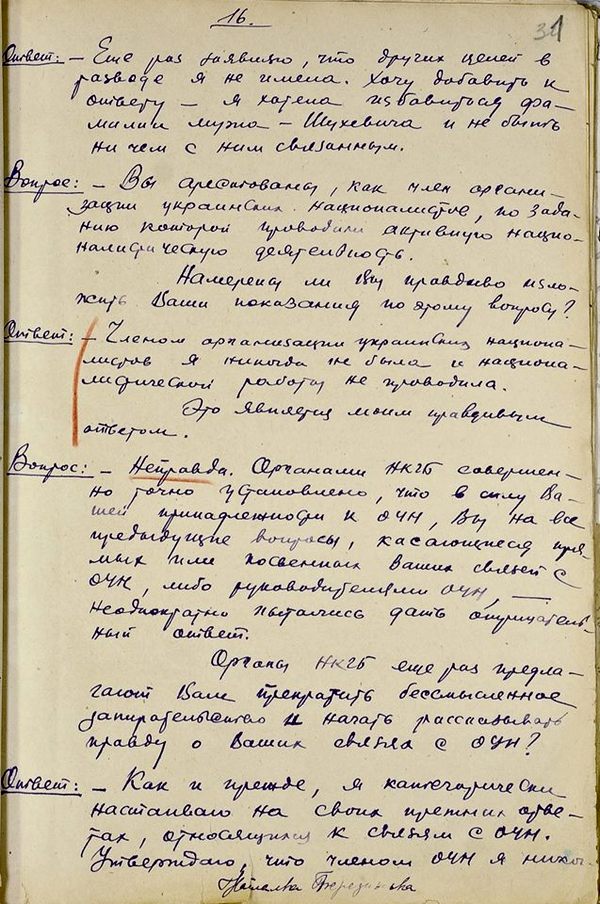 16.
31
Ответ: – Еще раз заявляю, что других целей в
разводе я не имела. Хочу добавить к
ответу – я хотела избавиться фа-
милии мужа – Шухевича и не быть
ни чем с ним связанным.
Вопрос: – Вы арестованы, как член органи-
зации украинских националистов, по зада-
нию которой проводили активную нацио-
налистическую деятельность.
Намерены ли Вы правдиво изло-
жить Ваши показания по этому вопросу?
Ответ: – Членом организации украинских национа-
листов я никогда не была и национа-
листической работы не проводила.
Это является моим правдивым
ответом.
Вопрос: – Неправда. Органами НКГБ совершен-
но точно установлено, что в силу Ва-
шей принадлежности к ОУН, Вы на все
предыдущие вопросы, касающиеся пря-
мых или косвенных Ваших связей с
ОУН, либо руководителями ОУН, —
неоднократно пытались дать отрицатель-
ный ответ.
Органы НКГБ еще раз предла-
гают Вам прекратить бессмысленное
запирательство и начать рассказывать
правду о Ваших связях с ОУН?
Ответ: – Как и прежде, я категорически
настаиваю на своих прежних отве-
тах, относящихся к связям с ОУН.
Утверждаю, что членом ОУН я нико-